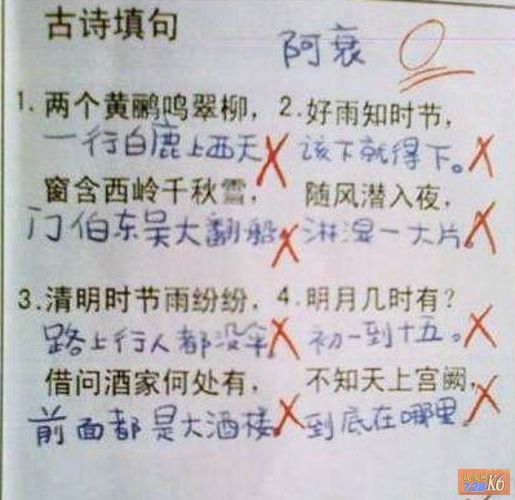 古诗填句
阿衰
0
1. 两个黄鹂鸣翠柳，
一行白鹿上西天
窗含西岭千秋雪，
门伯东吴大翻船
2. 好雨知时节，
该下就得下。
随风潜入夜，
淋湿一大片。
3. 清明时节雨纷纷，
路上行人都没伞
借问酒家何处有，
前面都是大酒楼
4. 明月几时有？
初一到十五。
不知天上宫阙，
到底在哪里
728K6